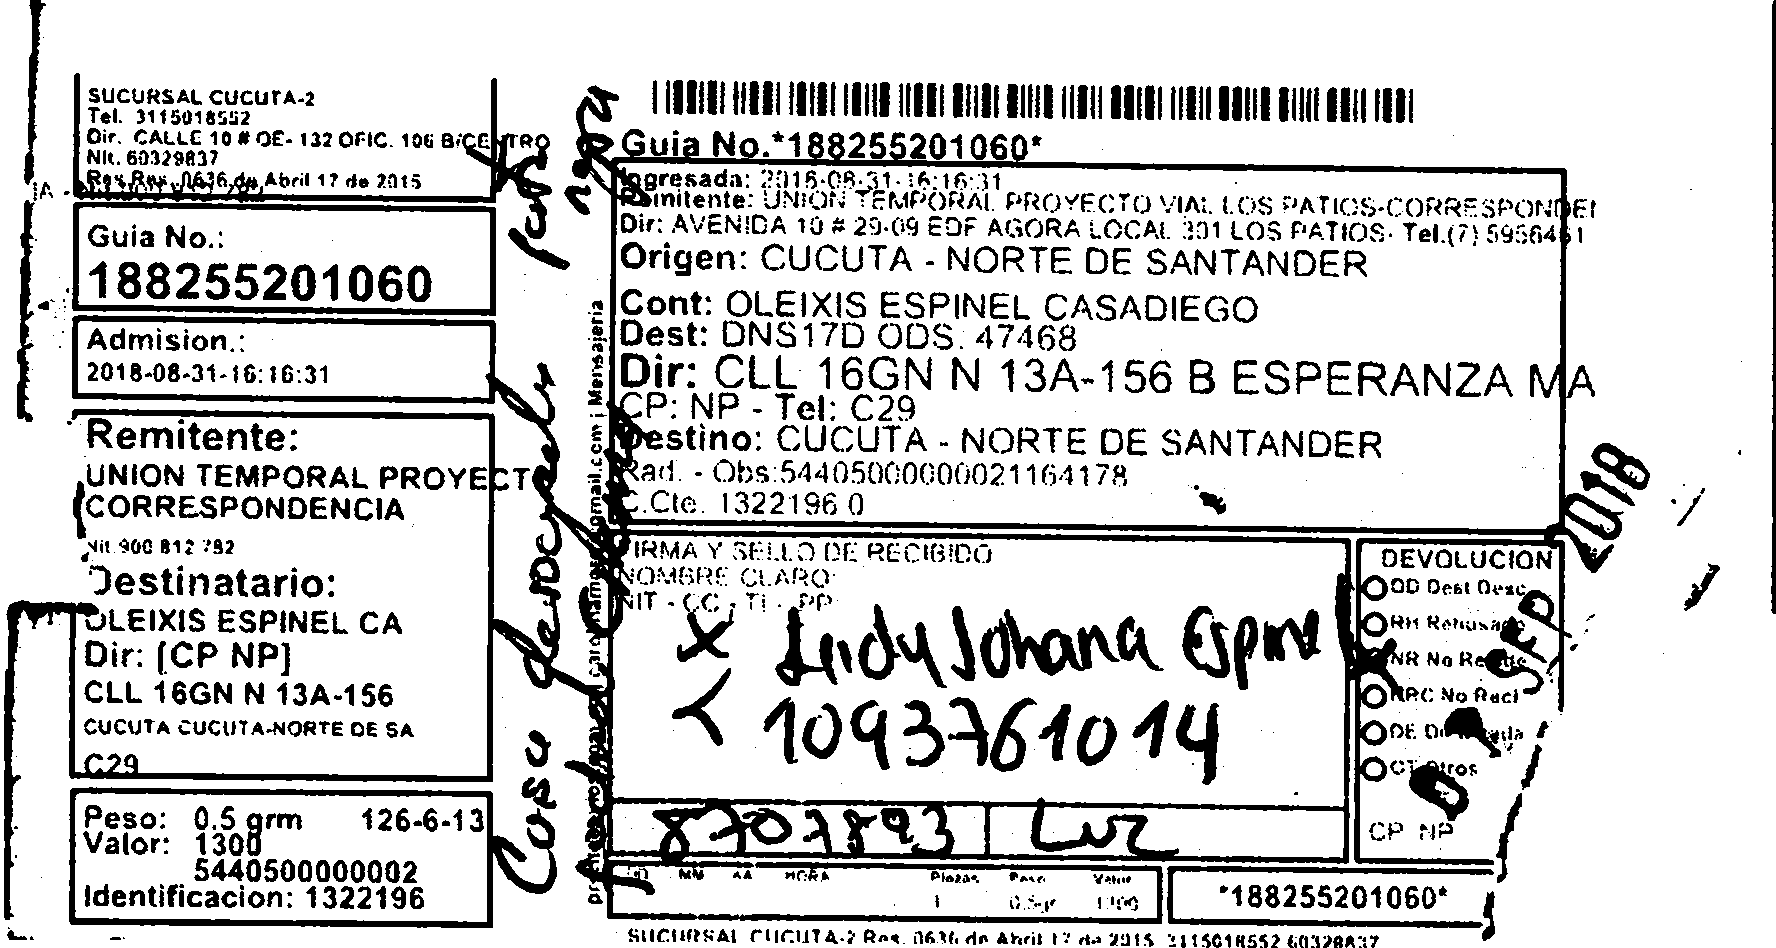 SUCURSAL CUCUTA-2
Tel. 3115018552
Dir. CALLE 10 # OE- 132 OFIC. 106 B/CENTRO
Nit. 60329837
Res.Res. 0636 de Abril 17 de 2015
Guia No.:
188255201060
Admision.:
2018-08-31-16:16:31
Remitente:
UNION TEMPORAL PROYECTO
CORRESPONDENCIA
Nit.900 812 782
Destinatario:
OLEIXIS ESPINEL CA
Dir: [CP NP]
CLL 16GN N 13A-156
CUCUTA CUCUTA-NORTE DE SA
C29
Peso: 0.5 grm 126-6-13
Valor: 1300
5440500000002
Identificacion: 1322196
Casa
Guia No.*188255201060*
Ingresada: 2018-08-31-16:16:31
Remitente: UNION TEMPORAL PROYECTO VIAL LOS PATIOS-CORRESPONDE
Dir: AVENIDA 10 # 29-09 EDF AGORA LOCAL 301 LOS PATIOS- Tel.(7) 5956461
Origen: CUCUTA - NORTE DE SANTANDER
Cont: OLEIXIS ESPINEL CASADIEGO
Dest: DNS17D ODS. 47468
Dir: CLL 16GN N 13A-156 B ESPERANZA MA
CP: NP - Tel: C29
Destino: CUCUTA - NORTE DE SANTANDER
Rad. - Obs:544050000000021164178
C.Cte. 1322196 0
FIRMA Y SELLO DE RECIBIDO
NOMBRE CLARO:
NIT - CC - TI - PP:
X Leidy Johana Espinel
1093761014
8707893 Luz
DEVOLUCION
DD Dest Desc
RH Rehusado
NR No Reside
NRC No Recl
DE
OT Otros
CP NP
SEP 2018
DD MM AA HORA Piezas Peso Valor
1 0.5gr 1300
*188255201060*
SUCURSAL CUCUTA-2 Res. 0636 de Abril 17 de 2015 3115018552 60329837